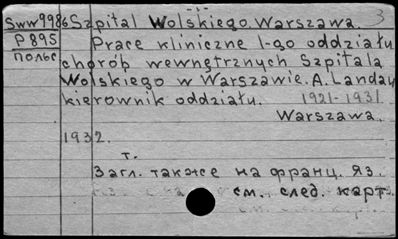 Sww9986 Szpital Wolskiego. Warszawa. 3
P895 Prace kliniczne I-go oddziału
польс chorób wewnętrznych Szpitala
Wolskiego w Warszawie. A. Landau
kierownik oddziału. 1921-1931
Warszawa.
1932.
т.
Загл. также на франц. яз.
см. след. карт.